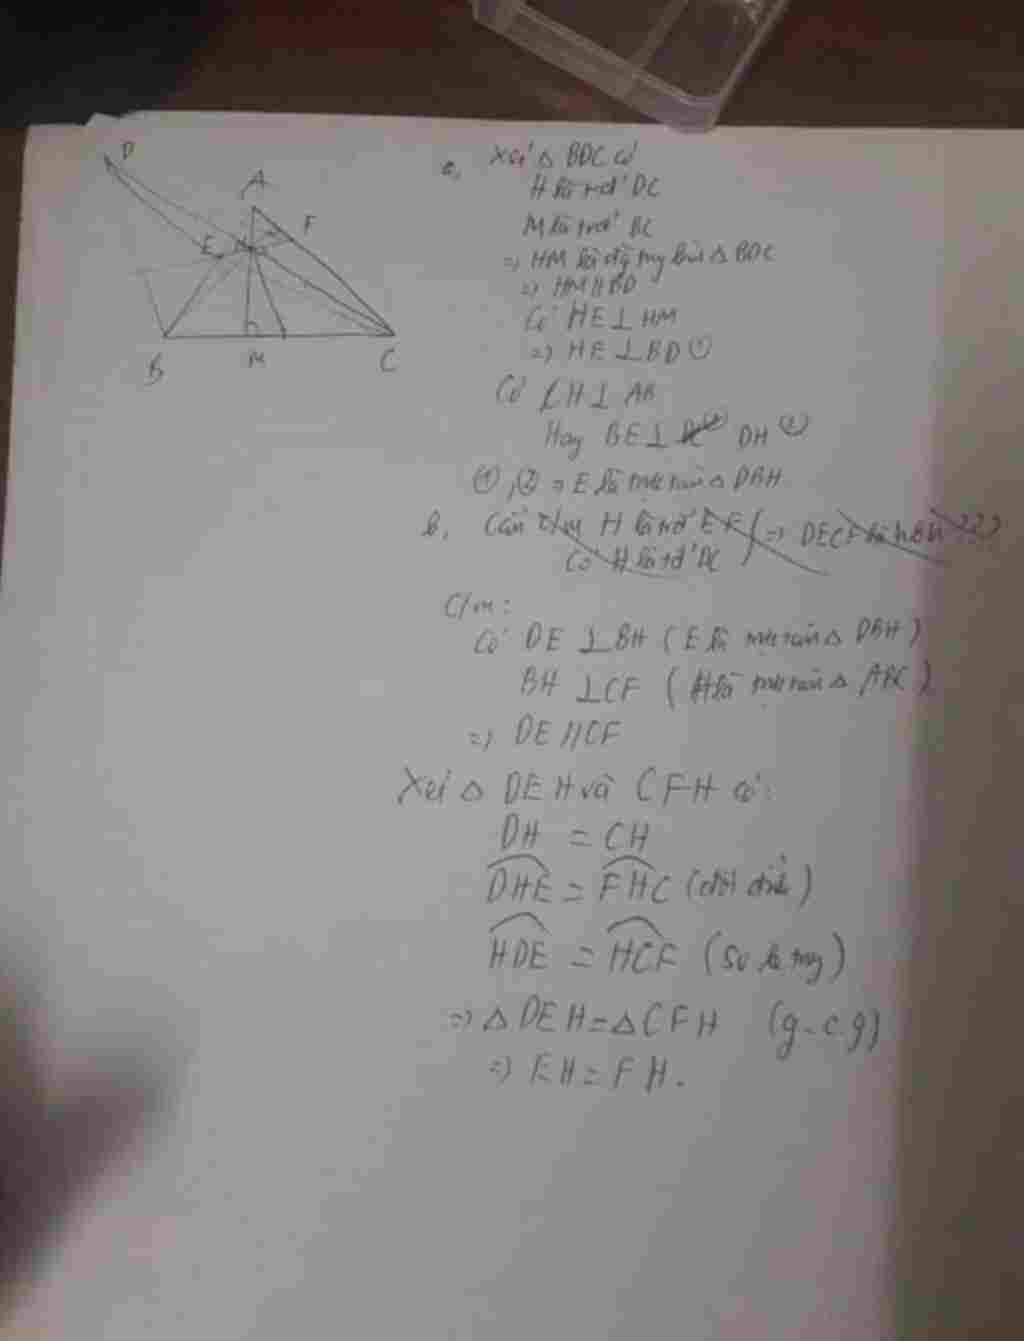 D
A
F
E H
B M C
a, Xét △ BDC có
H là trđ' DC
M là trđ' BC
=> HM là đg △ BDC
=> HM // BD
Có HE ⊥ HM
=> HE ⊥ BD ①
Có CH ⊥ AB
Hay BE ⊥ DH ②
①, ② => E là trực tâm △ DBH
b, Cần c/m H là trđ' EF => DECF là hbh ???
Có H là trđ' DC
C/m:
Có DE ⊥ BH (E là trực tâm △ DBH)
BH ⊥ CF (H là trực tâm △ ABC)
=> DE // CF
Xét △ DEH và CFH có:
DH = CH
DHE = FHC (đối đỉnh)
HDE = HCF (So le trg)
=> △ DEH = △ CFH (g-c.g)
=> EH = FH.